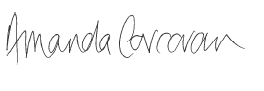 Amanda Corcoran